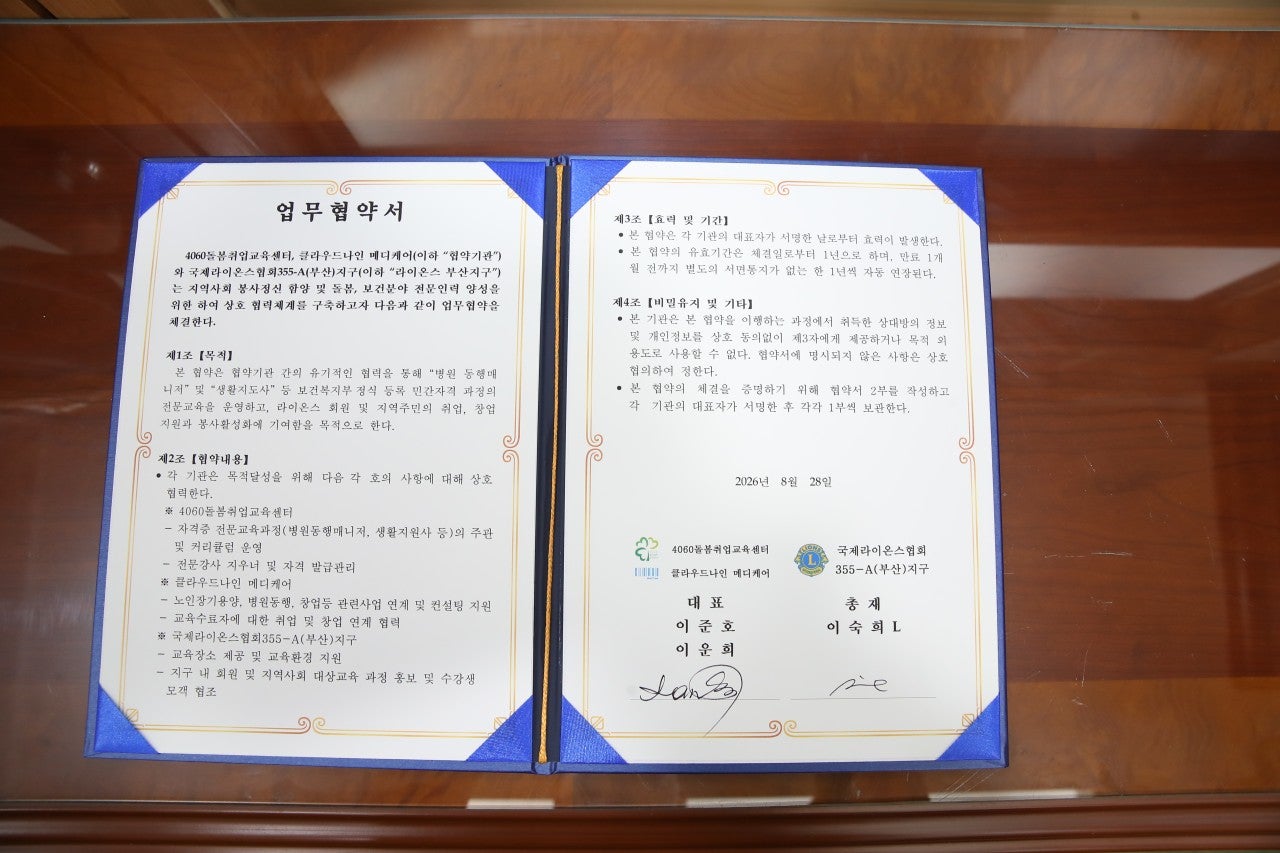 업무협약서
4060돌봄취업교육센터, 클라우드나인 메디케어(이하 “협약기관”)
와 국제라이온스협회355-A(부산)지구(이하 “라이온스 부산지구”)
는 지역사회 봉사정신 함양 및 돌봄, 보건분야 전문인력 양성을
위한 하여 상호 협력체계를 구축하고자 다음과 같이 업무협약을
체결한다.
제1조 【목적】
본 협약은 협약기관 간의 유기적인 협력을 통해 “병원 동행매
니저” 및 “생활지도사” 등 보건복지부 정식 등록 민간자격 과정의
전문교육을 운영하고, 라이온스 회원 및 지역주민의 취업, 창업
지원과 봉사활성화에 기여함을 목적으로 한다.
제2조 【협약내용】
• 각 기관은 목적달성을 위해 다음 각 호의 사항에 대해 상호
협력한다.
※ 4060돌봄취업교육센터
- 자격증 전문교육과정(병원동행매니저, 생활지원사 등)의 주관
및 커리큘럼 운영
- 전문강사 지우너 및 자격 발급관리
※ 클라우드나인 메디케어
- 노인장기용양, 병원동행, 창업등 관련사업 연계 및 컨설팅 지원
- 교육수료자에 대한 취업 및 창업 연계 협력
※ 국제라이온스협회355-A(부산)지구
- 교육장소 제공 및 교육환경 지원
- 지구 내 회원 및 지역사회 대상교육 과정 홍보 및 수강생
모객 협조
제3조 【효력 및 기간】
• 본 협약은 각 기관의 대표자가 서명한 날로부터 효력이 발생한다.
• 본 협약의 유효기간은 체결일로부터 1년으로 하며, 만료 1개
월 전까지 별도의 서면통지가 없는 한 1년씩 자동 연장된다.
제4조 【비밀유지 및 기타】
• 본 기관은 본 협약을 이행하는 과정에서 취득한 상대방의 정보
및 개인정보를 상호 동의없이 제3자에게 제공하거나 목적 외
용도로 사용할 수 없다. 협약서에 명시되지 않은 사항은 상호
협의하여 정한다.
• 본 협약의 체결을 증명하기 위해 협약서 2부를 작성하고
각 기관의 대표자가 서명한 후 각각 1부씩 보관한다.
2026년 8월 28일
4060돌봄취업교육센터
클라우드나인 메디케어
대 표
이 준 호
이 운 희
국제라이온스협회
355-A(부산)지구
총 재
이 숙 희 L